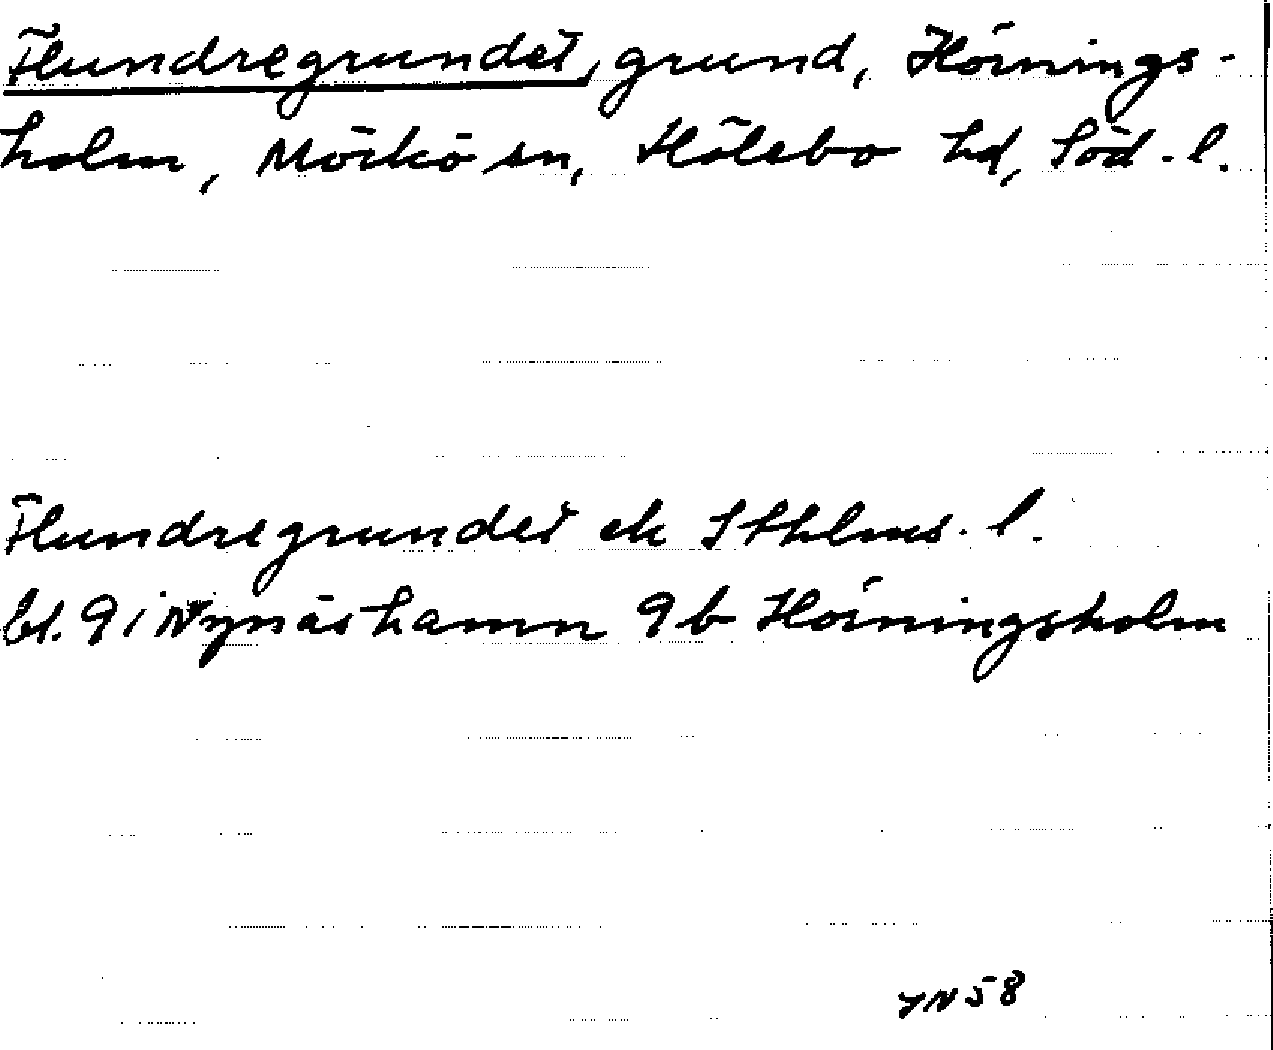 Flundregrundet, grund, Hörnings-
holm, Mörkö sn, Hölebo hd, Söd. l.
Flundregrundet ek Sthlms. l.
bl. 9 i Nynäshamn 9b Hörningsholm
YN 58